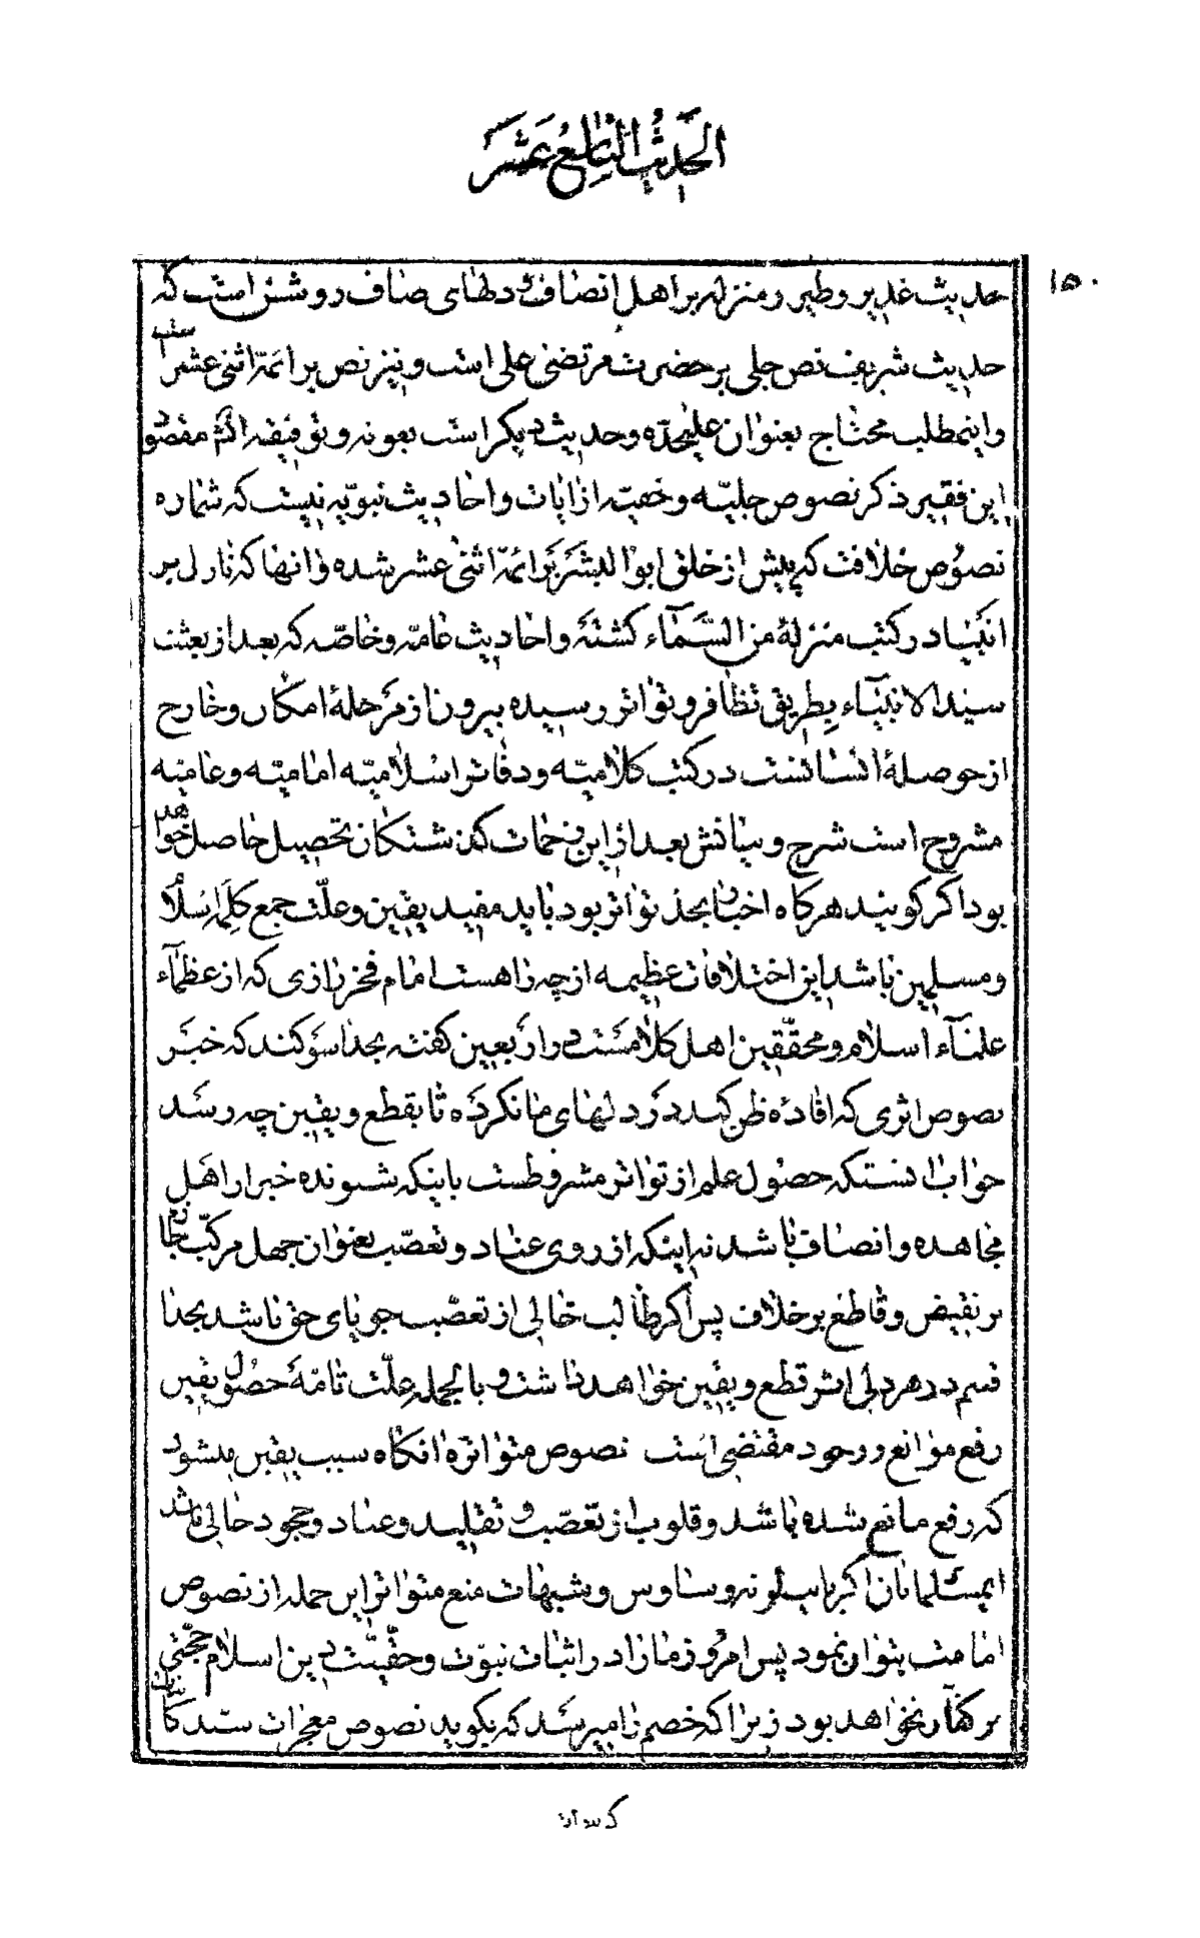 الحدیث التاسع عشر
۱۵۰
حدیث غدیر و طیر و منزله بر اهل انصاف و دلهای صاف روشن است که
حدیث شریف نص جلی بر حضرت مرتضی علی است و نیز نص بر ائمّۀ اثنی عشر است
و اینمطلب محتاج بعنوان علیحدّه و حدیث دیگر است بعونه و توفیقه النّم مقصود
این فقیر ذکر نصوص جلیّه و خفیّه از ایات و احادیث نبویّه نیست که شماره
نصوص خلافت که پیش از خلق ابو البشر بر ائمّۀ اثنی عشر شده و انها که نازل بر
انبیا در کتب منزلۀ من السّماء کشته و احادیث عامّه و خاصّه که بعد از بعثت
سید الانبیاء بطریق تظافر و تواتر رسیده بیرون از مرحلۀ امکان و خارج
از حوصلۀ انسانست در کتب کلامیّه و دفاتر اسلامیّه امامیّه و عامیّه
مشروح است شرح و بیانش بعد از این زحمات کذشتکان تحصیل حاصل خواهد
بود اکر کویند هرکاه اخبار بحد تواتر بود باید مفید یقین و علّت جمع کلمۀ اسلام
و مسلمین باشد این اختلافات عظیمه از چه راهست امام فخر رازی که از عظمآء
علمآء اسلام و محقّقین اهل کلامست در اربعین کفته بخدا سوکند که خبر
نصوص اثری که افادۀ ظن کند در دلهای ما نکرده تا بقطع و یقین چه رسد
جواب انستکه حصول علم از تواتر مشروطست باینکه شنونده خبر از اهل
مجاهده و انصاف باشد نه اینکه از روی عناد و تعصّب بعنوان جهل مرکّب جازم
بر نقیض و قاطع بر خلاف پس اکر طالب خالی از تعصّب جویای حق باشد بخدا
قسم در هر دلی اثر قطع و یقین خواهد داشت و بالجمله علّت تامّۀ حصول یقین
رفع موانع و وجود مقتضی است نصوص متواتره انکاه سبب یقین میشود
که رفع مانع شده باشد و قلوب از تعصّب و تقلید و عناد و جحود خالی باشد
ایمسلمانان اکر باین کونه وساوس و شبهات منع متواتر این جمله از نصوص
امامت بتوان نمود پس امروز ما را در اثبات نبوّت و حقّیّت دین اسلام حجّتی
بر کفّار نخواهد بود زیرا که خصم را میرسد که بکوید نصوص معجزات سند کاینات